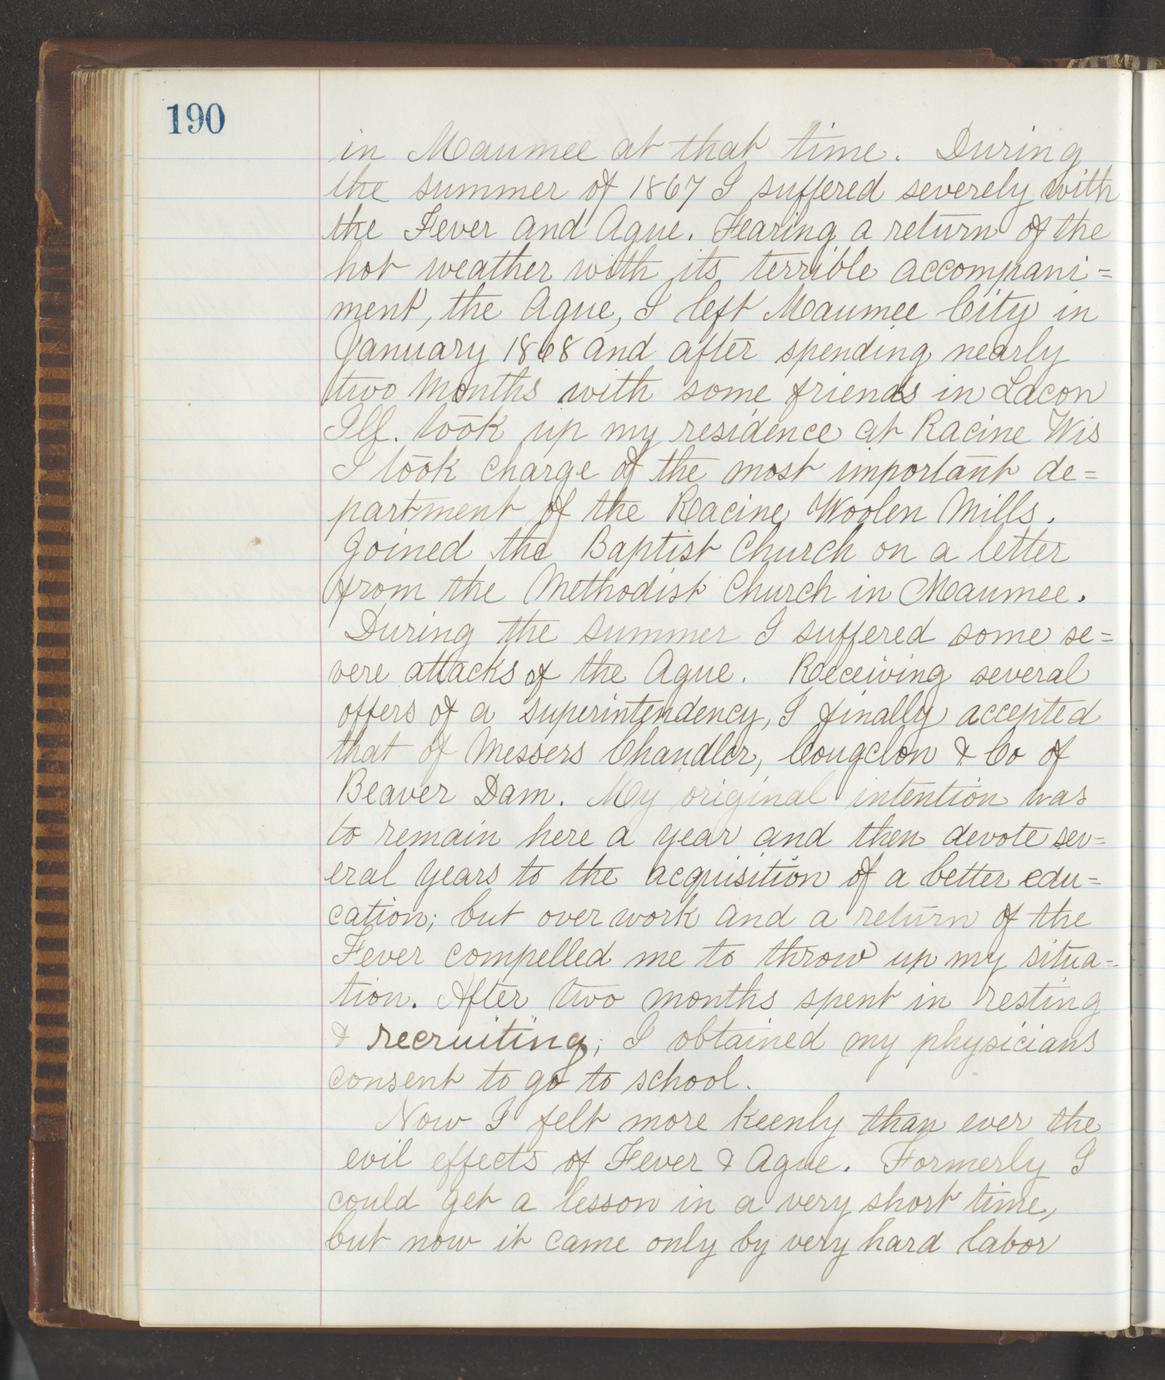 190
in Maumee at that time. During
the summer of 1867 I suffered severely with
the Fever and Ague. Fearing a return of the
hot weather with its terrible accompani=
ment, the Ague, I left Maumee City in
January 1868 and after spending nearly
two months with some friends in Lacon
Ill. took up my residence at Racine Wis
I took charge of the most important de=
partment of the Racine Woolen Mills.
Joined the Baptist Church on a letter
from the Methodist Church in Maumee.
During the summer I suffered some se=
vere attacks of the Ague. Receiving several
offers of a superintendency, I finally accepted
that of Messers Chandler, Congdon & Co of
Beaver Dam. My original intention was
to remain here a year and then devote sev=
eral years to the acquisition of a better edu=
cation; but over work and a return of the
Fever compelled me to throw up my situa=
tion. After two months spent in resting
& recruiting, I obtained my physicians
consent to go to school.
Now I felt more keenly than ever the
evil effects of Fever & Ague. Formerly I
could get a lesson in a very short time,
but now it came only by very hard labor